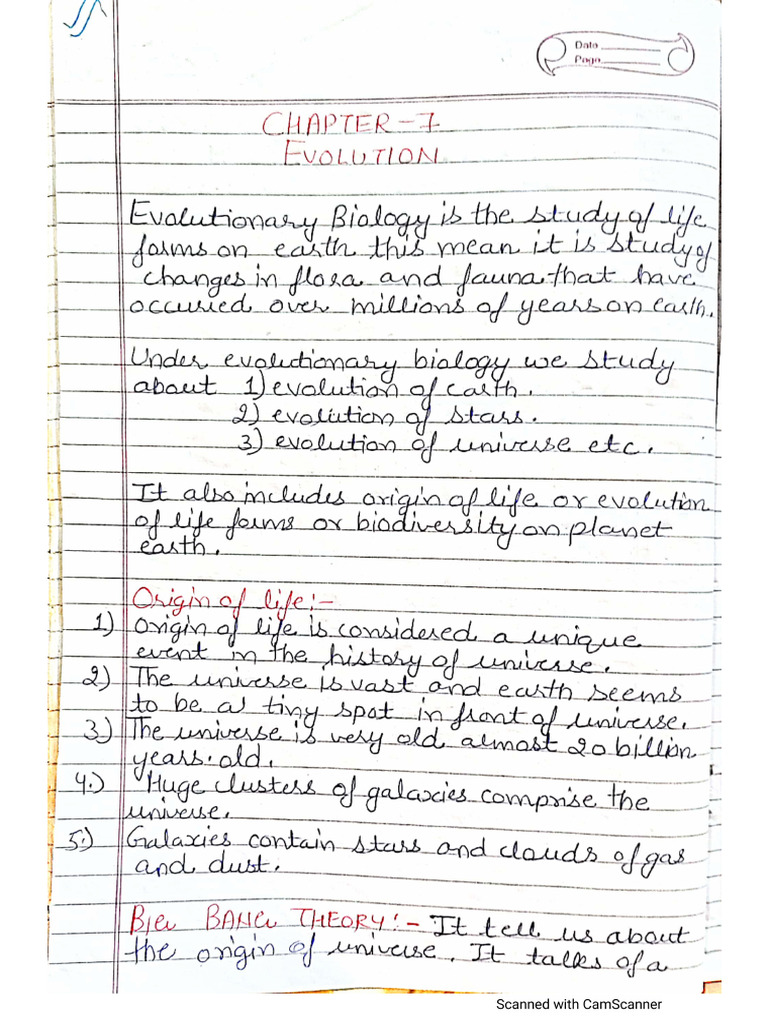 Date
Page
CHAPTER-7
EVOLUTION
Evolutionary Biology is the study of life
forms on earth this mean it is study of
changes in flora and fauna that have
occuried over millions of years on earth.
Under evolutionary biology we study
about 1) evolution of earth.
2) evolution of stars.
3) evolution of universe etc.
It also includes origin of life or evolution
of life forms or biodiversity on planet
earth.
Origin of life:-
1) Origin of life is considered a unique
event in the history of universe.
2) The universe is vast and earth seems
to be a tiny spot in front of universe.
3) The universe is very old almost 20 billion
years old.
4.) Huge clusters of galaxies comprise the
universe.
5.) Galaxies contain stars and clouds of gas
and dust.
BIG BANG THEORY:- It tell us about
the origin of universe. It talks of a
Scanned with CamScanner